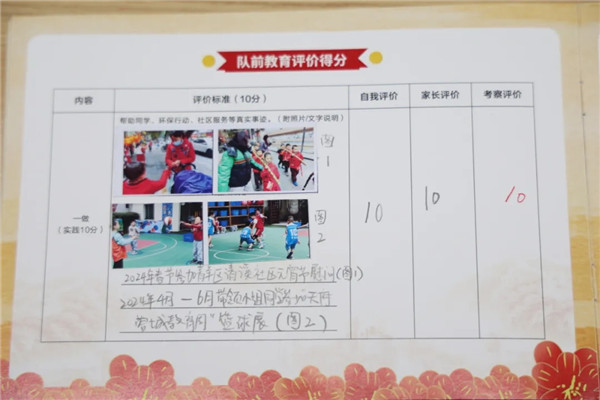 队前教育评价得分
内容 评价标准（10分） 自我评价 家长评价 考察评价
帮助同学、环保行动、社区服务等真实事迹。（附照片/文字说明）
图1
图2
一做
（实践10分）
10 10 10
2024年春节参加 社区元宵 (图1)
2024年4月－6月带领小组同学
"篮球展 (图2)